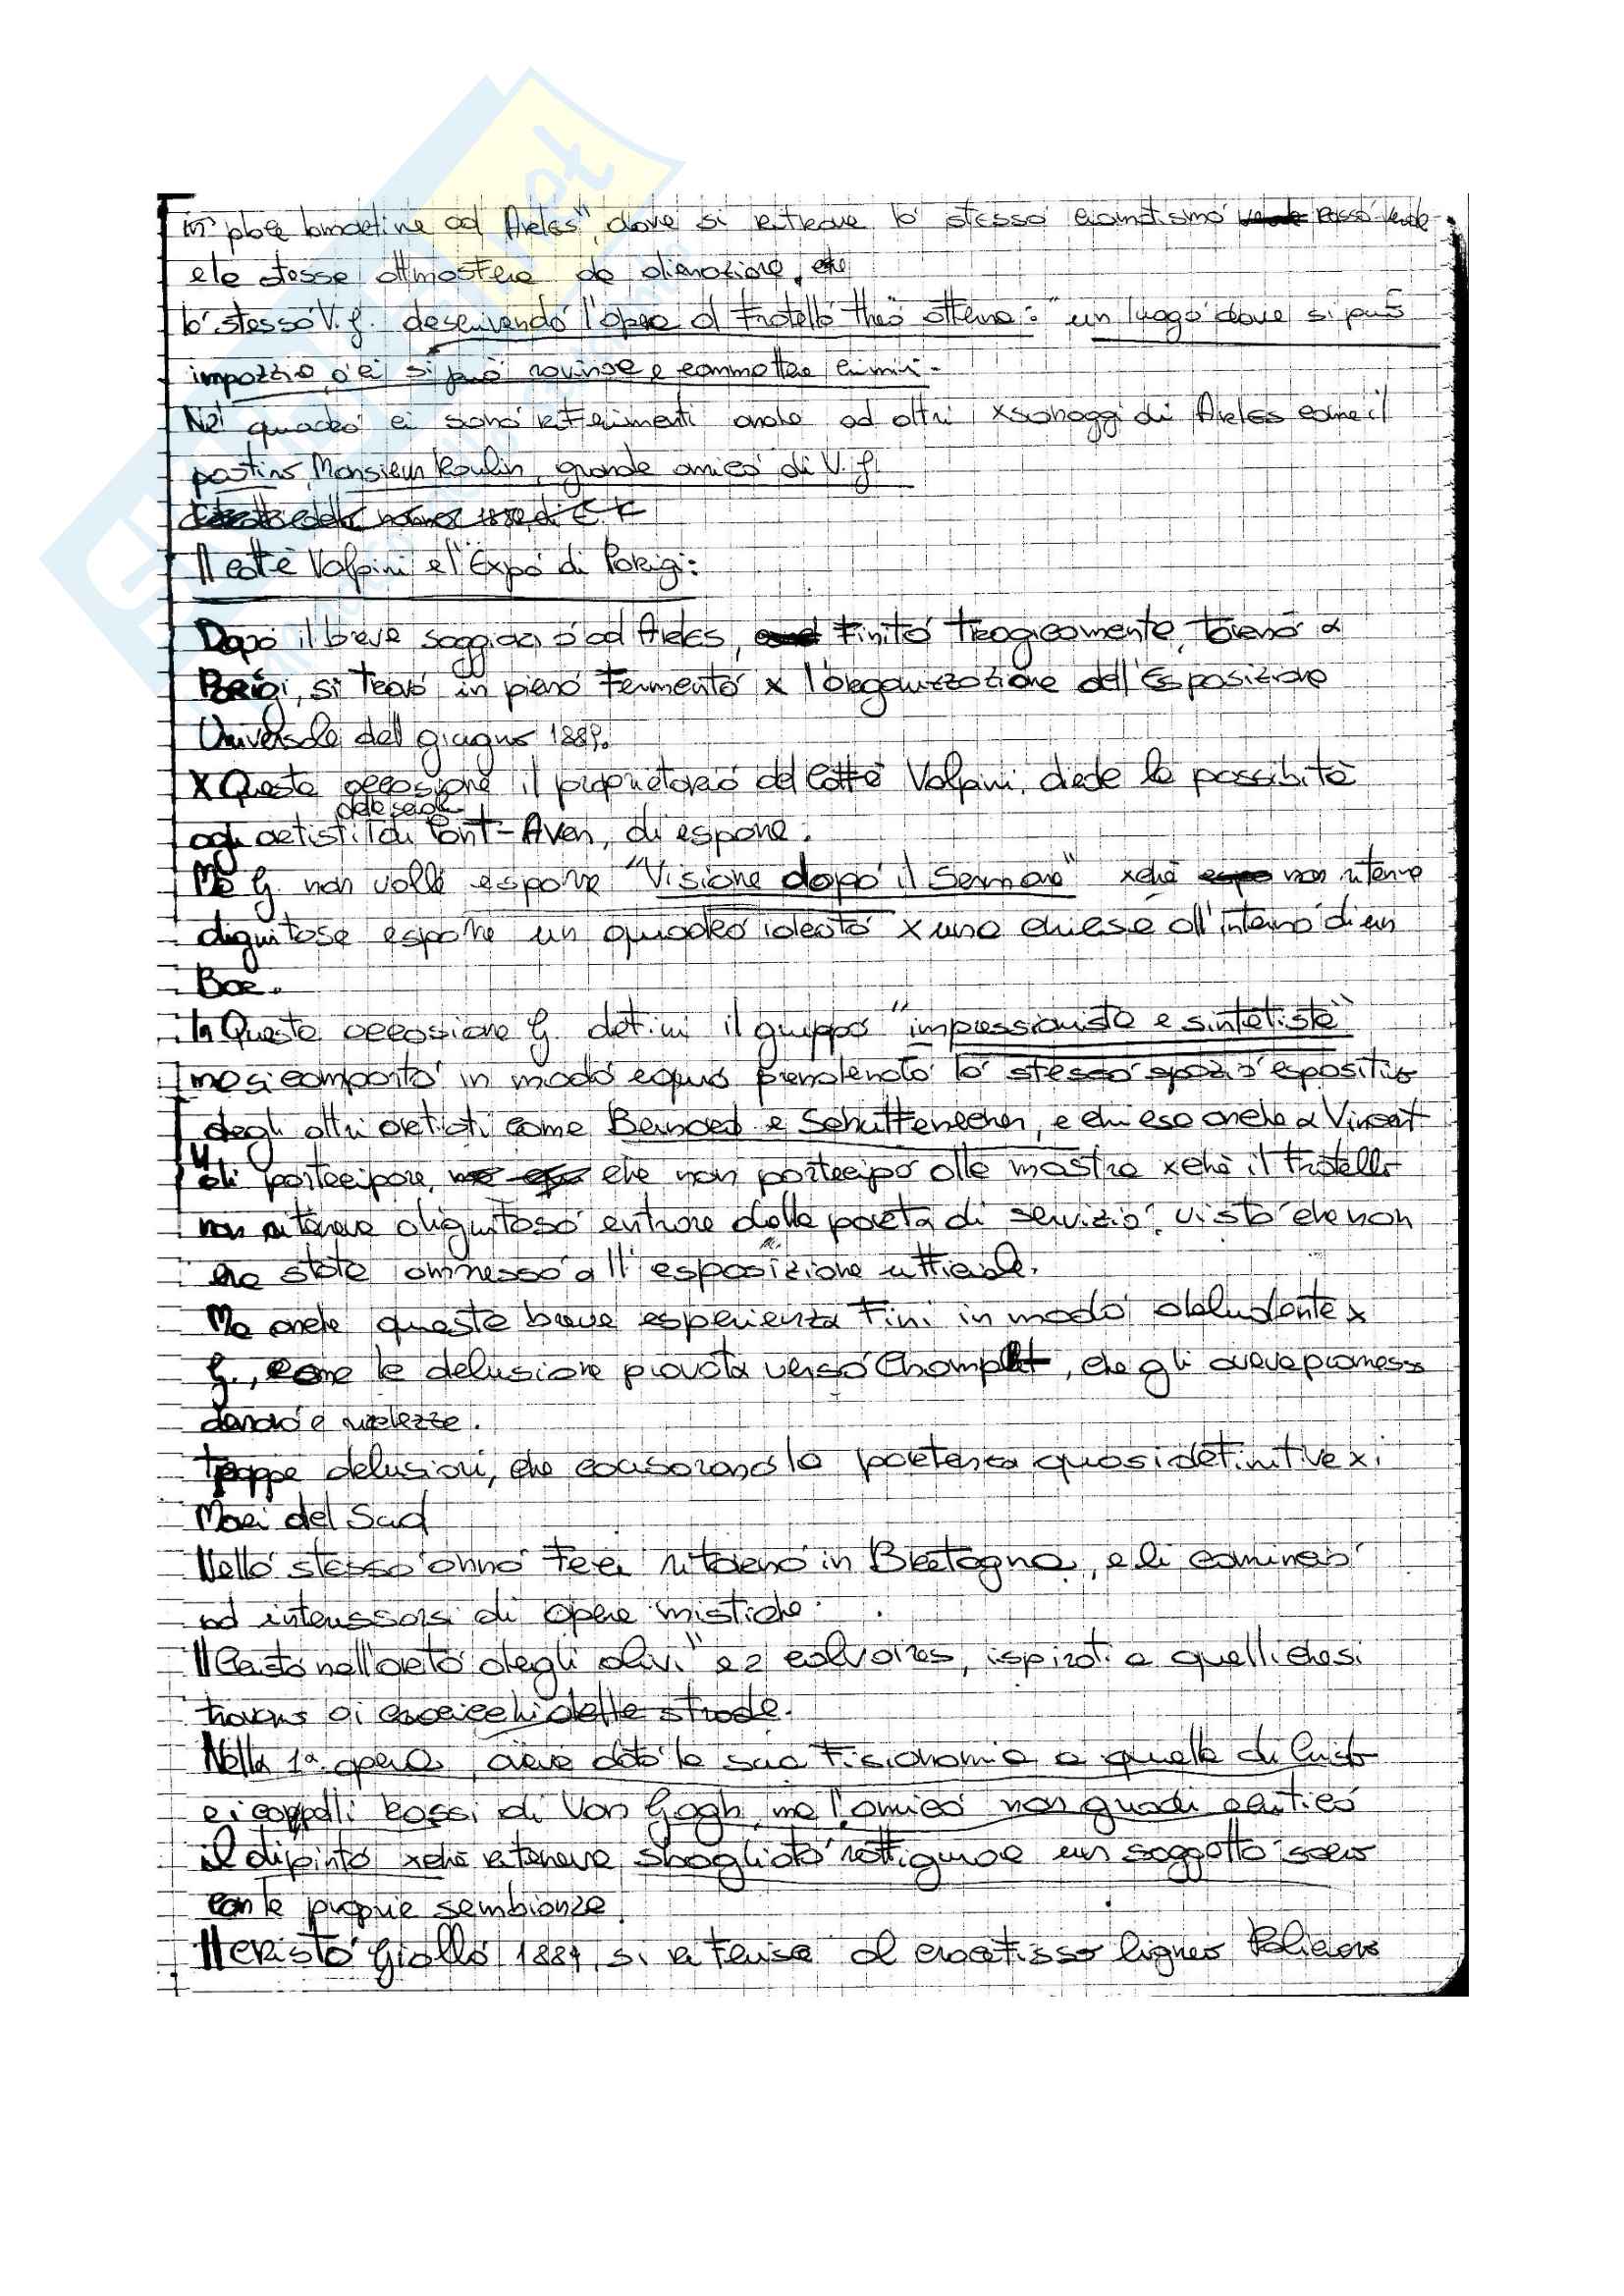 in place lamartine ad Arles", dove si ritrova lo stesso cromatismo rosso verde
e la stessa attmosfera da alienazione,
lo stesso V.G. descrivendo l'opera al fratello Theo afferma: "un luogo dove si può
impazzire, o ci si può rovinare e commettere crimini.
Nel quadro ci sono riferimenti anche ad altri xsonaggi di Arles come il
postino, Monsieur Roulin, grande amico di V.G.
Il caffè Volpini e l'Expo di Parigi:
Dopo il breve soggiorno ad Arles, finito tragicamente, tornò a
Parigi, si trovò in pieno fermento x l'organizzazione dell'Esposizione
Universale del giugno 1889.
X Questa occasione il proprietario del Caffè Volpini, diede la possibità
agli artisti della scuola di Pont-Aven, di esporre.
Ma G. non volle esporre "Visione dopo il Sermone" xchè non riteneva
dignitose esporre un quadro ideato x una chiesa all'interno di un
Bar.
In Questa occasione G. definì il gruppo "impressionista e sintetista"
ma si comportò in modo equo prenotando lo stesso spazio espositivo
degli altri artisti come Bernard e Schuffenecher, e chiese anche a Vincent
di partecipare, che non partecipò alla mostra xchè il fratello
non riteneva dignitoso entrare dalla porta di servizio, visto che non
era stato ammesso all'esposizione ufficiale.
Ma anche questa breve esperienza finì in modo deludente x
G., come la delusione provata verso Champlet, che gli aveva promesso
denaro e richezze.
troppe delusioni, che causarono la partenza quasi definitiva x i
Mari del Sud
Nello stesso anno fece ritorno in Bretagna, e li cominciò
ad interessarsi di opere mistiche.
"Cristo nell'orto degli olivi" e 2 calvaires, ispirati a quelli che si
trovano ai crocicchi delle strade.
Nella 1ª opera, aveva dato la sua fisionomia a quella di Cristo
e i cappelli rossi di Van Gogh, ma l'amico non gradì criticò
il dipinto xchè riteneva sbagliato raffigurare un soggetto sacro
con le proprie sembianze.
Il Cristo Giallo 1889, si riferisce al crocifisso ligneo Policromo